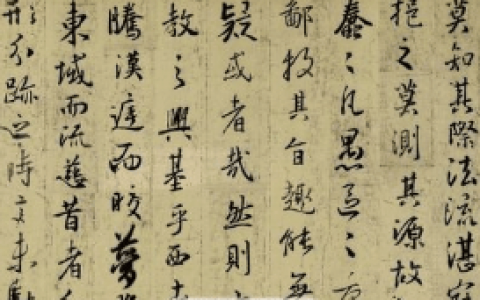 莫知其際法流湛寂
挹之莫測其源故
蠢々凡愚區々庸
鄙投其旨趣能無
疑或者哉然則
教之興基乎西土
騰漢庭而皎夢
東域而流慈昔者
形分跡之時言未馳